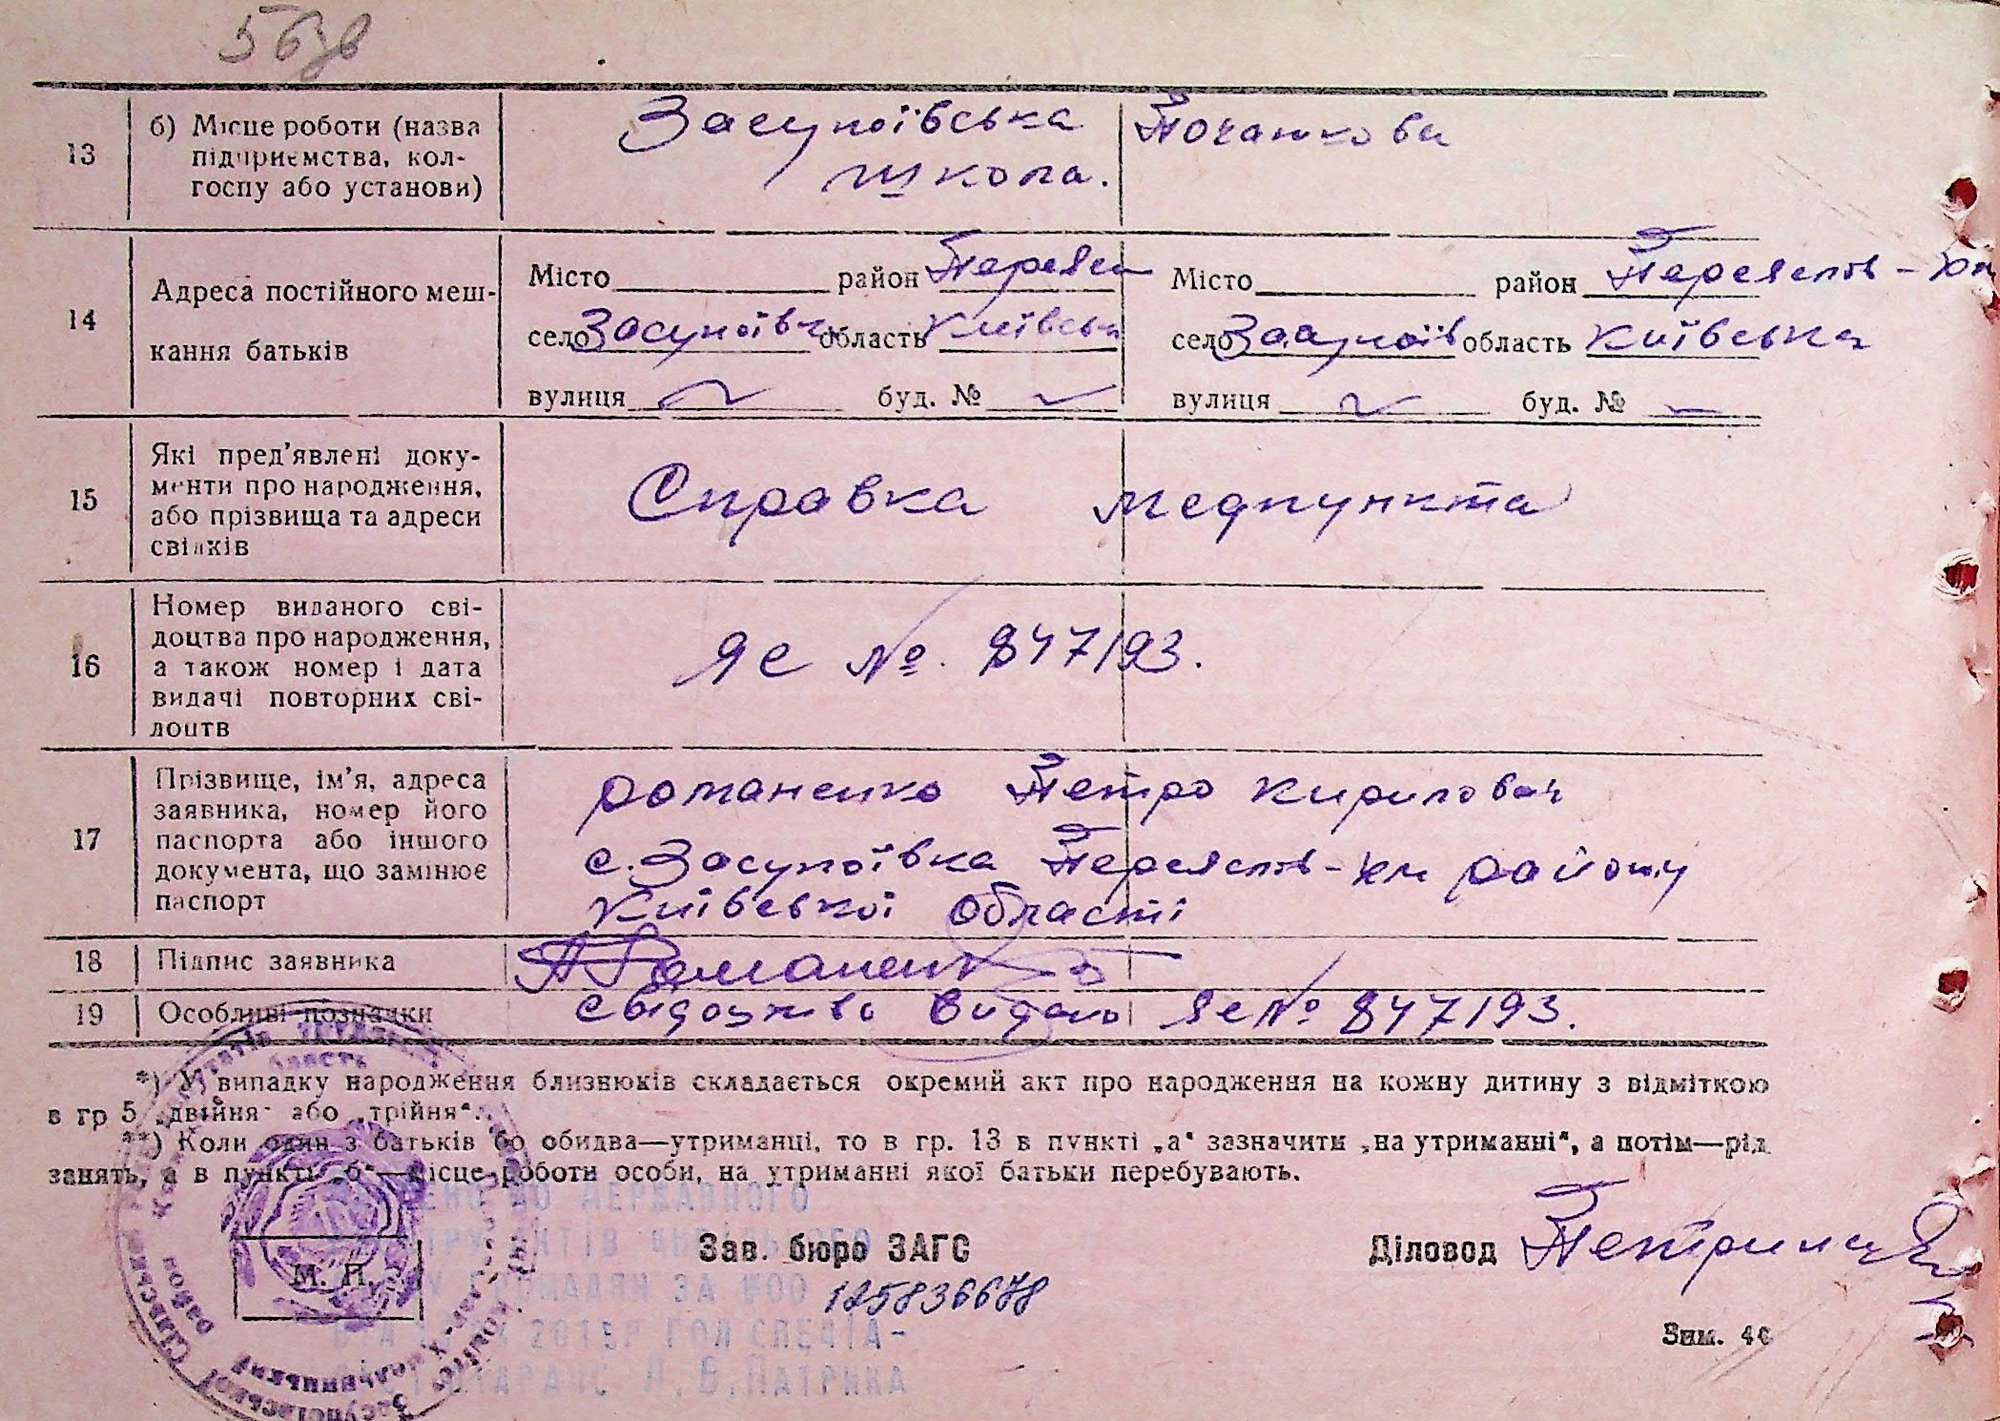 13 б) Місце роботи (назва підприємства, колгоспу або установи) Засупоївська Початкова школа.
14 Адреса постійного мешкання батьків
Місто район Переясл Місто район Переяслів-Хм
село Засупоївка область Київська село Засупоїв область Київська
вулиця буд. № вулиця буд. №
15 Які пред'явлені документи про народження, або прізвища та адреси свідків Справка медпункта
16 Номер виданого свідоцтва про народження, а також номер і дата видачі повторних свідоцтв ЯЄ №. 847193.
17 Прізвище, ім'я, адреса заявника, номер його паспорта або іншого документа, що замінює паспорт
Романенко Петро Кирилович
с. Засупоївка Переяслів-Хм району
Київської області
18 Підпис заявника Романенко
19 Особливі позначки Свідоцтво видано ЯЄ № 847193.
*) У випадку народження близнюків складається окремий акт про народження на кожну дитину з відміткою
в гр 5 „двійня" або „трійня".
**) Коли один з батьків бо обидва—утриманці, то в гр. 13 в пункті „а" зазначити „на утриманні", а потім—рід
занять, а в пункті „б"—місце роботи особи, на утриманні якої батьки перебувають.
М. П.
Зав. бюро ЗАГС
Діловод
125836678
Зим. 40